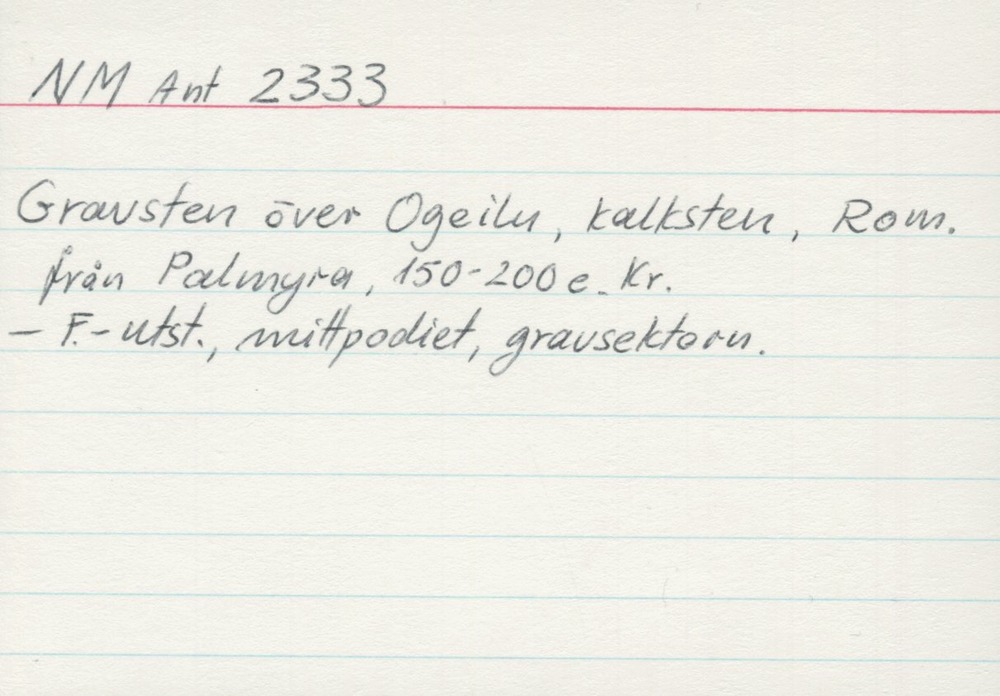 NM Ant 2333
Gravsten över Ogeilu, kalksten, Rom.
från Palmyra, 150-200 e. Kr.
- F.-utst., mittpodiet, gravsektorn.